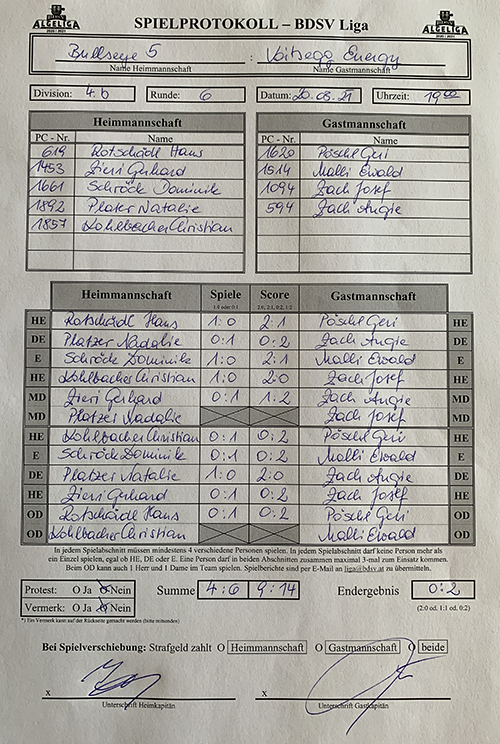 ALGELIGA
2020 | 2021
SPIELPROTOKOLL – BDSV Liga
ALGELIGA
2020 | 2021
Bullseye 5 : Voitsegg Energy
Name Heimmannschaft Name Gastmannschaft
Division: 4.b Runde: 6 Datum: 20.08.21 Uhrzeit: 19 00
Heimmannschaft Gastmannschaft
PC - Nr. Name PC - Nr. Name
619 Rotschädl Hans 1620 Pöschl Geri
1453 Zieri Gerhard 1514 Malli Ewald
1661 Schröck Dominik 1094 Zach Josef
1892 Platzer Natalie 594 Zach Angie
1857 Kohlbacher Christian
Heimmannschaft Spiele Score Gastmannschaft
1:0 oder 0:1 2:0, 2:1, 0:2, 1:2
HE Rotschädl Hans 1:0 2:1 Pöschl Geri HE
DE Platzer Nadalie 0:1 0:2 Zach Angie DE
E Schröck Dominik 1:0 2:1 Malli Ewald E
HE Kohlbacher Christian 1:0 2:0 Zach Josef HE
MD Zieri Gerhard 0:1 1:2 Zach Angie MD
MD Platzer Nadalie Zach Josef MD
HE Kohlbacher Christian 0:1 0:2 Pöschl Geri HE
E Schröck Dominik 0:1 0:2 Malli Ewald E
DE Platzer Natalie 1:0 2:0 Zach Angie DE
HE Zieri Gerhard 0:1 0:2 Zach Josef HE
OD Rotschädl Hans 0:1 0:2 Pöschl Geri OD
OD Kohlbacher Christian Malli Ewald OD
In jedem Spielabschnitt müssen mindestens 4 verschiedene Personen spielen. In jedem Spielabschnitt darf keine Person mehr als
ein Einzel spielen, egal ob HE, DE oder E. Eine Person darf in beiden Abschnitten zusammen maximal 3-mal zum Einsatz kommen.
Beim OD kann auch 1 Herr und 1 Dame im Team spielen. Spielberichte sind per E-Mail an liga@bdsv.at zu übermitteln.
Protest: O Ja O Nein Summe 4:6 9:14 Endergebnis 0:2
Vermerk: O Ja O Nein (2:0 od. 1:1 od. 0:2)
*) Ein Vermerk kann auf der Rückseite gemacht werden (bitte mitsenden)
Bei Spielverschiebung: Strafgeld zahlt O Heimmannschaft O Gastmannschaft O beide
x x
Unterschrift Heimkapitän Unterschrift Gastkapitän